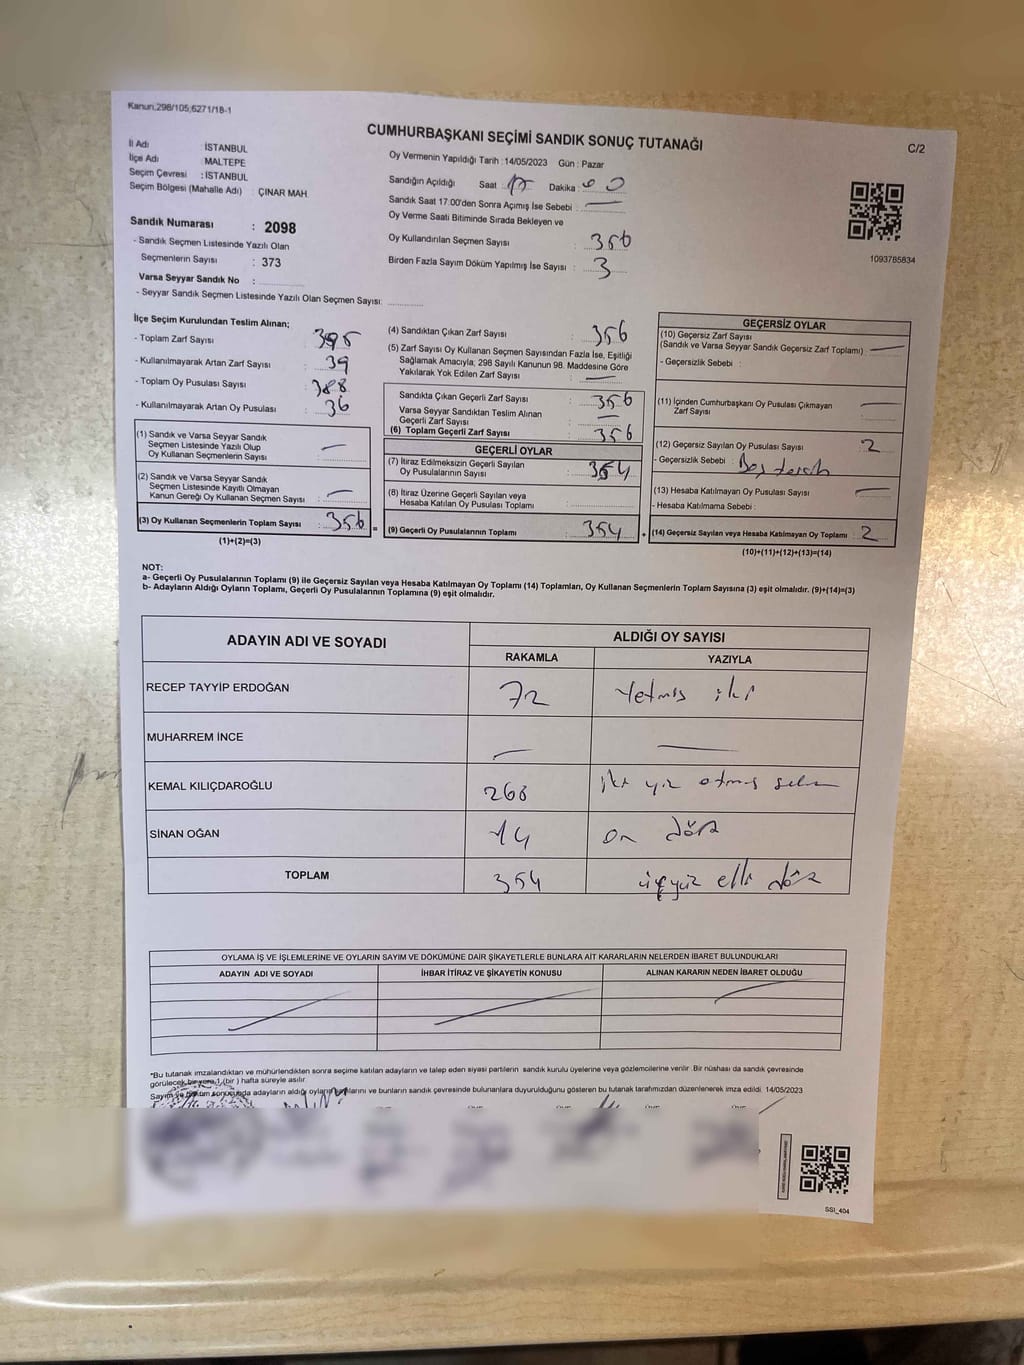 Kanun,298/105,6271/18-1
CUMHURBAŞKANI SEÇİMİ SANDIK SONUÇ TUTANAĞI
C/2
İl Adı : İSTANBUL
İlçe Adı : MALTEPE
Seçim Çevresi : İSTANBUL
Seçim Bölgesi (Mahalle Adı) : ÇINAR MAH.
Sandık Numarası : 2098
- Sandık Seçmen Listesinde Yazılı Olan
Seçmenlerin Sayısı : 373
Varsa Seyyar Sandık No :
- Seyyar Sandık Seçmen Listesinde Yazılı Olan Seçmen Sayısı:
Oy Vermenin Yapıldığı Tarih : 14/05/2023 Gün : Pazar
Sandığın Açıldığı Saat : 17 Dakika : 00
Sandık Saat 17:00'den Sonra Açımış İse Sebebi : —
Oy Verme Saati Bitiminde Sırada Bekleyen ve
Oy Kullandırılan Seçmen Sayısı : 356
Birden Fazla Sayım Döküm Yapılmış İse Sayısı : 3
1093785834
İlçe Seçim Kurulundan Teslim Alınan;
- Toplam Zarf Sayısı : 395
- Kullanılmayarak Artan Zarf Sayısı : 39
- Toplam Oy Pusulası Sayısı : 388
- Kullanılmayarak Artan Oy Pusulası : 36
(1) Sandık ve Varsa Seyyar Sandık
Seçmen Listesinde Yazılı Olup
Oy Kullanan Seçmenlerin Sayısı : —
(2) Sandık ve Varsa Seyyar Sandık
Seçmen Listesinde Kayıtlı Olmayan
Kanun Gereği Oy Kullanan Seçmen Sayısı : —
(3) Oy Kullanan Seçmenlerin Toplam Sayısı : 356 =
(1)+(2)=(3)
(4) Sandıktan Çıkan Zarf Sayısı : 356
(5) Zarf Sayısı Oy Kullanan Seçmen Sayısından Fazla İse, Eşitliği
Sağlamak Amacıyla; 298 Sayılı Kanunun 98. Maddesine Göre
Yakılarak Yok Edilen Zarf Sayısı : —
Sandıkta Çıkan Geçerli Zarf Sayısı : 356
Varsa Seyyar Sandıktan Teslim Alınan
Geçerli Zarf Sayısı : —
(6) Toplam Geçerli Zarf Sayısı : 356
GEÇERLİ OYLAR
(7) İtiraz Edilmeksizin Geçerli Sayılan
Oy Pusulalarının Sayısı : 354
(8) İtiraz Üzerine Geçerli Sayılan veya
Hesaba Katılan Oy Pusulaları Toplamı :
(9) Geçerli Oy Pusulalarının Toplamı : 354 +
GEÇERSİZ OYLAR
(10) Geçersiz Zarf Sayısı
(Sandık ve Varsa Seyyar Sandık Geçersiz Zarf Toplamı) : —
- Geçersizlik Sebebi :
(11) İçinden Cumhurbaşkanı Oy Pusulası Çıkmayan
Zarf Sayısı : —
(12) Geçersiz Sayılan Oy Pusulası Sayısı : 2
- Geçersizlik Sebebi : Boş
(13) Hesaba Katılmayan Oy Pusulası Sayısı : —
- Hesaba Katılmama Sebebi :
(14) Geçersiz Sayılan veya Hesaba Katılmayan Oy Toplamı : 2
(10)+(11)+(12)+(13)=(14)
NOT:
a- Geçerli Oy Pusulalarının Toplamı (9) ile Geçersiz Sayılan veya Hesaba Katılmayan Oy Toplamı (14) Toplamları, Oy Kullanan Seçmenlerin Toplam Sayısına (3) eşit olmalıdır. (9)+(14)=(3)
b- Adayların Aldığı Oyların Toplamı, Geçerli Oy Pusulalarının Toplamına (9) eşit olmalıdır.
ADAYIN ADI VE SOYADI
ALDIĞI OY SAYISI
RAKAMLA YAZIYLA
RECEP TAYYİP ERDOĞAN 72 Yetmiş iki
MUHARREM İNCE — —
KEMAL KILIÇDAROĞLU 268 iki yüz atmış sekiz
SİNAN OĞAN 14 on dört
TOPLAM 354 üçyüz elli dört
OYLAMA İŞ VE İŞLEMLERİNE VE OYLARIN SAYIM VE DÖKÜMÜNE DAİR ŞİKAYETLERLE BUNLARA AİT KARARLARIN NELERDEN İBARET BULUNDUKLARI
ADAYIN ADI VE SOYADI İHBAR İTİRAZ VE ŞİKAYETİN KONUSU ALINAN KARARIN NEDEN İBARET OLDUĞU
*Bu tutanak imzalandıktan ve mühürlendikten sonra seçime katılan adayların ve talep eden siyasi partilerin sandık kurulu üyelerine veya gözlemcilerine verilir. Bir nüshası da sandık çevresinde
görülecek bir yere 1 (bir ) hafta süreyle asılır.
Sayım ve döküm sonucunda adayların aldığı oyların sayılarını ve bunların sandık çevresinde bulunanlara duyurulduğunu gösteren bu tutanak tarafımızdan düzenlenerek imza edildi. 14/05/2023
SSI_404